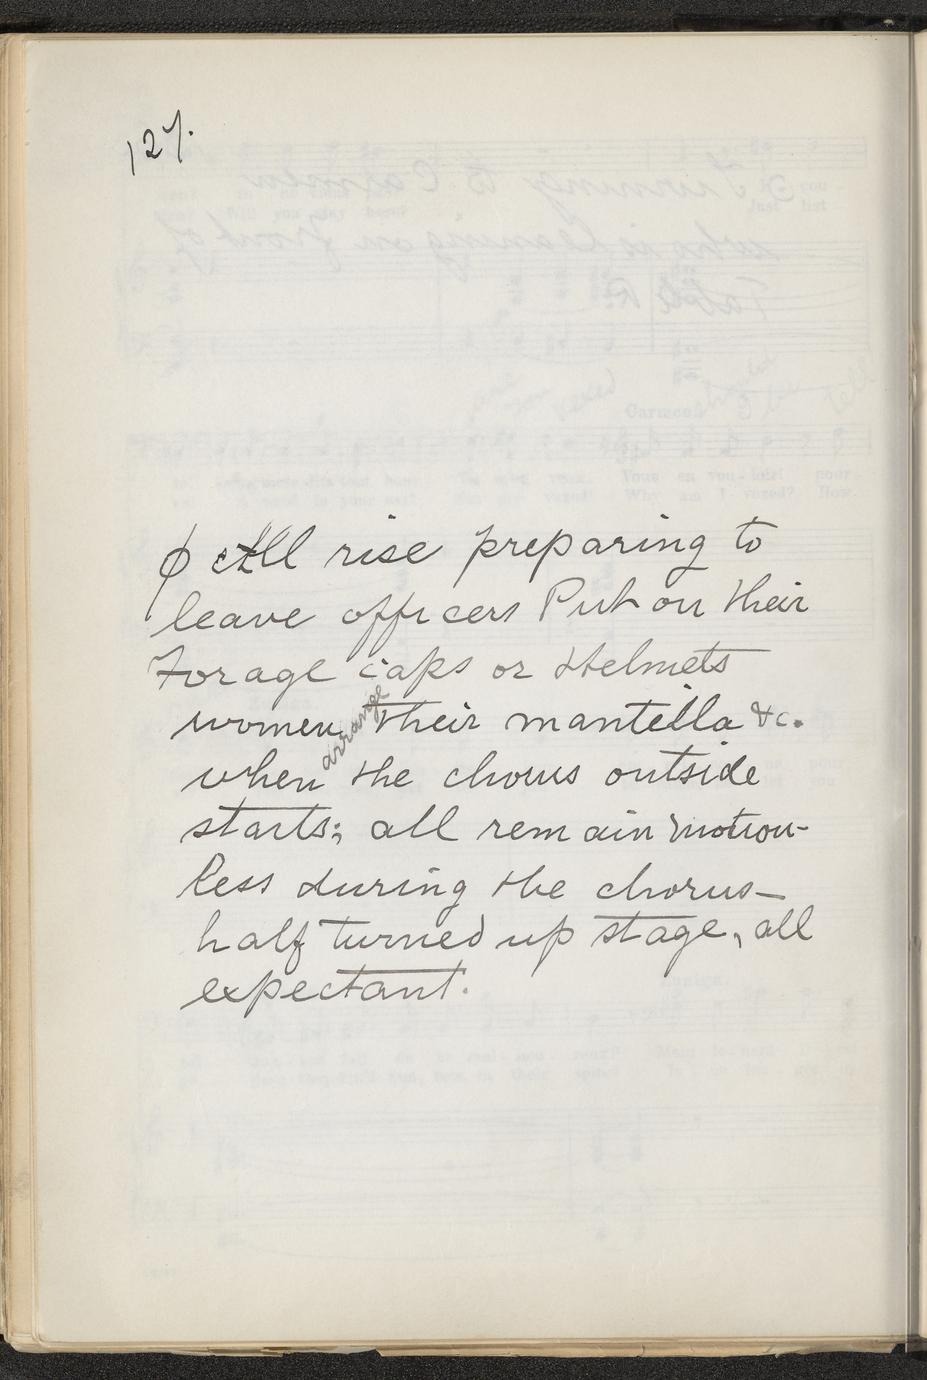 127.
ϕ All rise preparing to
leave officers Put on their
Forage caps or Helmets
women arrange their mantella &c.
when the chorus outside
starts; all remain motion-
less during the chorus—
half turned up stage, all
expectant.